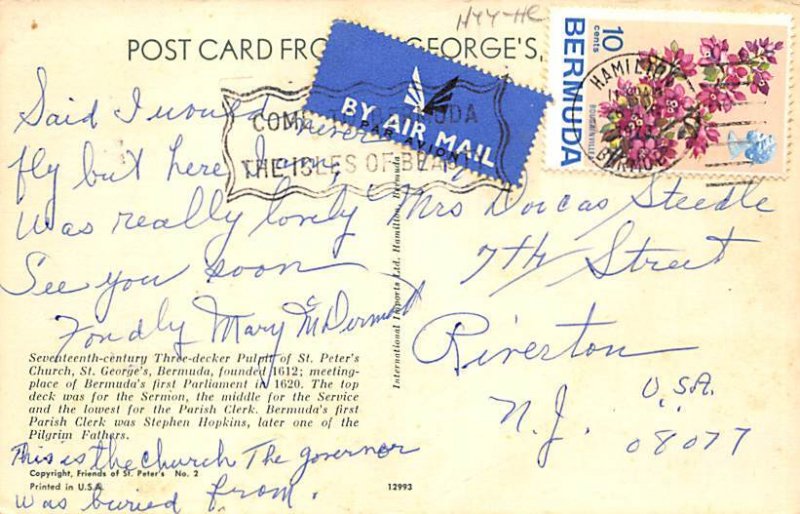 H44-HC
POST CARD FRO GEORGE'S,
BY AIR MAIL
PAR AVION
10 cents
BERMUDA
BOUGAINVILLEA
HAMILTON
BERMUDA
COME TO BERMUDA
THE ISLES OF
Said I would never
fly but here I am,
Was really lovely
See you soon
Fondly Mary McDermott
Mrs Dorcas Steedle
7th Street
Riverton
N.J.
U.S.A.
08077
International Imports Ltd. Hamilton, Bermuda
Seventeenth-century Three-decker Pulpit of St. Peter's
Church, St. George's, Bermuda, founded 1612; meeting-
place of Bermuda's first Parliament in 1620. The top
deck was for the Sermon, the middle for the Service
and the lowest for the Parish Clerk. Bermuda's first
Parish Clerk was Stephen Hopkins, later one of the
Pilgrim Fathers.
This is the church The governor
was buried from.
Copyright, Friends of St. Peter's No. 2
Printed in U.S.A.
12993